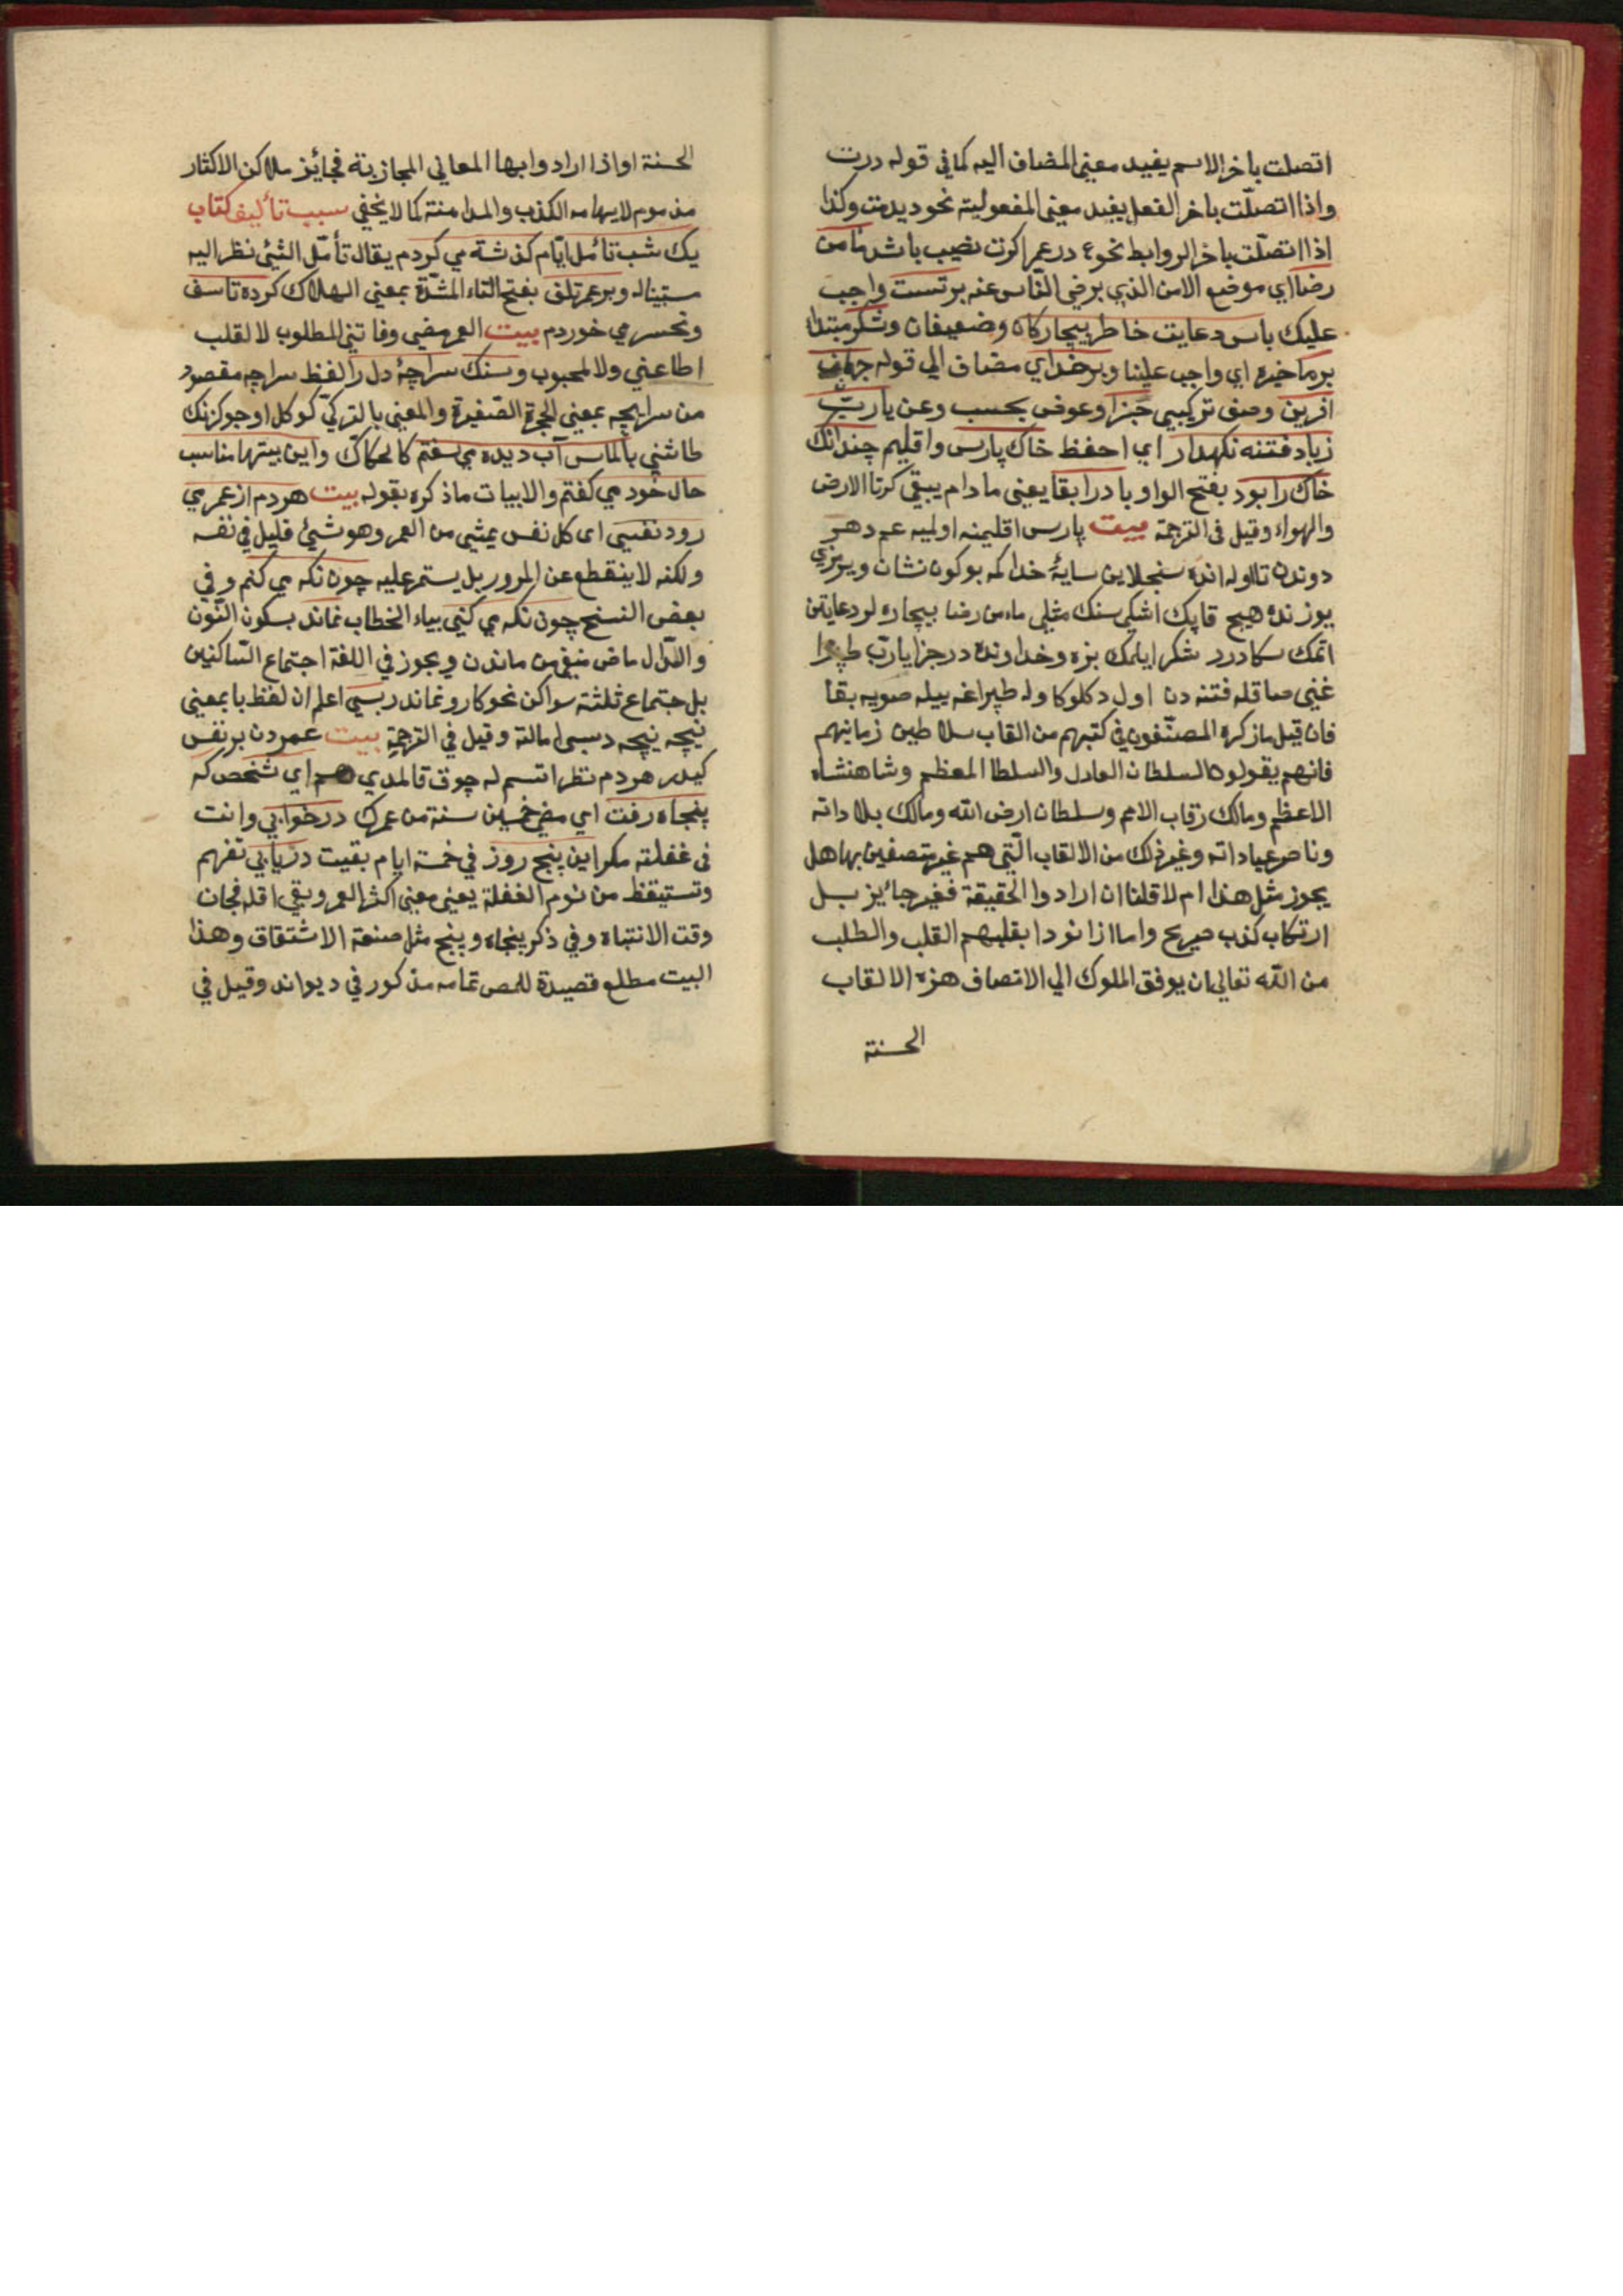 اتصلت باخر الاسم يفيد معنى المضاف اليه كما في قوله درت
واذا اتصلت باخر الفعل يفيد معنى المفعولية نحو ديدمت وكذا
اذا اتصلت باخر الروابط نحو ع در عمر اكرت نصيب باشد مامن
رضا اي موضع الامن الذي يرضى الناس عنه برتست واجب
عليك پاس دعايت خاطر بيچاركان وضعيفان وشكر مبتدا
برما خبره اي واجب علينا وبرخداي مضاف الي قوله جهان
افرين وصف تركيبي جزا وعوض بحسب وعن يارب
زباد فتنه نكهدار اي احفظ خاك پارس واقليم چندانك
خاك را بود بفتح الواو باد را بقا يعني مادام يبقى كرتا الارض
والهواء وقيل في الترجمة بيت پارس اقليمنه اوليه غم دهر
دوندن تا اوله انده سنجلاين سايۀ خدا كمه بوكون نشان ويرمزي
يوزنده هيچ قاپك اشكي سنك مثلي مامن رضا بيچاره لر دعايتن
اتمك سكا درر شكر ايلمك بزه وخداونده در جزا يارب طپرا
غني صاقله فتنه دن اول دكلو كا وله طپراغه ييله صويه بقا
فان قيل ماذكره المصنفون في كتبهم من القاب سلاطين زمانهم
فانهم يقولون السلطان العادل والسلطا المعظم وشاهنشاه
الاعظم ومالك رقاب الامم وسلطان ارض الله ومالك بلاداته
وناصر عباداته وغير ذلك من الالقاب التي هم غير متصفين بها هل
يجوز مثل هذا ام لا قلنا ان ارادوا الحقيقة فغير جائز بل
ارتكاب كذب صريح واما اذا نودا بقلبهم القلب والطلب
من الله تعالى ان يوفق الملوك الي الاتصاف هزه الالقاب
الحسنة
الحسنة او اذا ارادوا بها المعاني المجازية فجائز ملاكن الاكثار
مذموم لايهامه الكذب والمداهنة كما لا يخفي سبب تأليف كتاب
يك شب تأمل ايام كذشته مي كردم يقال تأمل الشئ نظر اليه
مستبينا له وبر عمر تلف بفتح التاء المشدة بمعني الهلاك كرده تاسف
وتحسر مي خوردم بيت العمر مضى وفاتني المطلوب لا القلب
اطاعني ولا المحبوب وسنك سراچۀ دل را لفظ سراچه مقصود
من سرايچه بمعني الحجرة الصغيرة والمعنى بالتركي كوكل اوجوكزنك
طاشني بالماس آب ديده مي سفتم كالحكاك واين بيتها مناسب
حال خود مي كفتم والابيات ماذكره بقوله بيت هر دم از عمر مي
رود نفسي اي كل نفس يمشي من العمر وهو شئ قليل في نفسه
ولكنه لا ينقطع عن المرور بل يستمر عليه چون نكه مي كنم وفي
بعض النسخ چون نكه مي كني بياء الخطاب نماند بسكون النون
والدال ماض منفي من ماندن ويجوز في اللغة اجتماع الساكنين
بل جتماع ثلثة سواكن نحو كارو نماند ربسي اعلم ان لفظ با بمعني
نيچه نيچه دبسى امالة وقيل في الترجمة بيت عمردن بر نفس
كيدر هردم نظر اتسم له چوق قالمدي هم اي شخص كه
پنجاه رفت اي مضى خمسين سنة من عمرك در خوابي وانت
في غفلة مكر اين پنج روز في خمسة ايام بقيت دريابي تفهم
وتستيقظ من نوم الغفلة يعني معني اكثر العمر وبقي اقله فجان
وقت الانتباه وفي ذكر پنجاه وپنج مثل صنعة الاشتقاق وهذا
البيت مطلع قصيدة للمص تمامه مذكور في ديوانه وقيل في